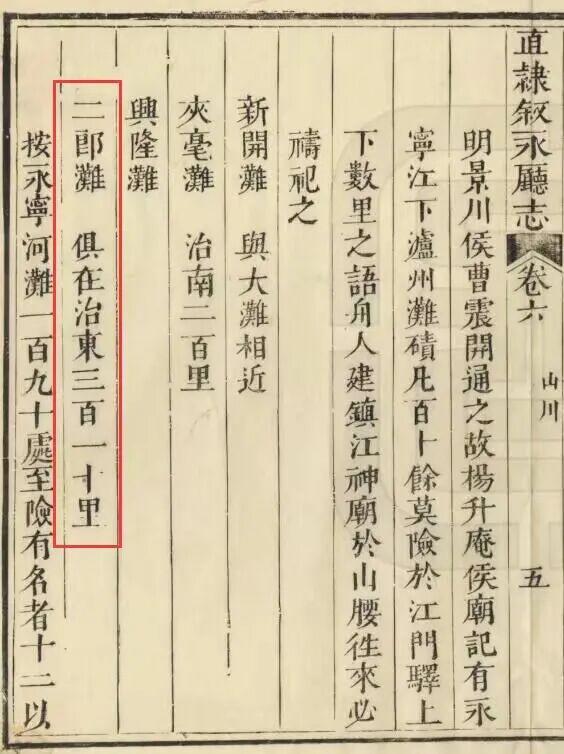 直隸敘永廳志
卷六
山川
五
明景川侯曹震開通之故楊升庵侯廟記有永
寧江下瀘州灘磧凡百十餘莫險於江門驛上
下數里之語舟人建鎮江神廟於山腰徃來必
禱祀之
新開灘 與大灘相近
夾毫灘 治南二百里
興隆灘
二郎灘 俱在治東三百一十里
按永寧河灘一百九十處至險有名者十二以